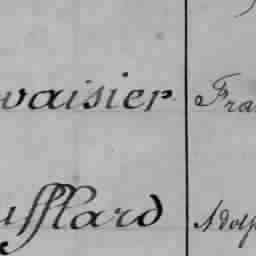 vaisier Fra
ufflard Adolp